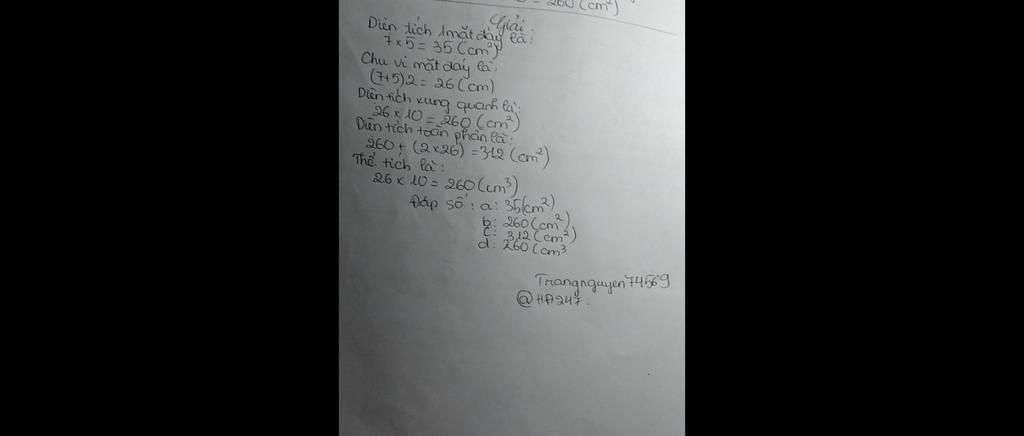 = 260 (cm²)
Giải:
Diện tích 1 mặt đáy là:
7 × 5 = 35 (cm²)
Chu vi mặt đáy là:
(7+5)2 = 26 (cm)
Diện tích xung quanh là:
26 × 10 = 260 (cm²)
Diện tích toàn phần là:
260 + (2×26) = 312 (cm²)
Thể tích là:
26 × 10 = 260 (cm³)
Đáp số: a: 35(cm²)
b: 260 (cm²)
c: 312 (cm²)
d: 260 (cm³
Trangnguyen74569
@HA247.